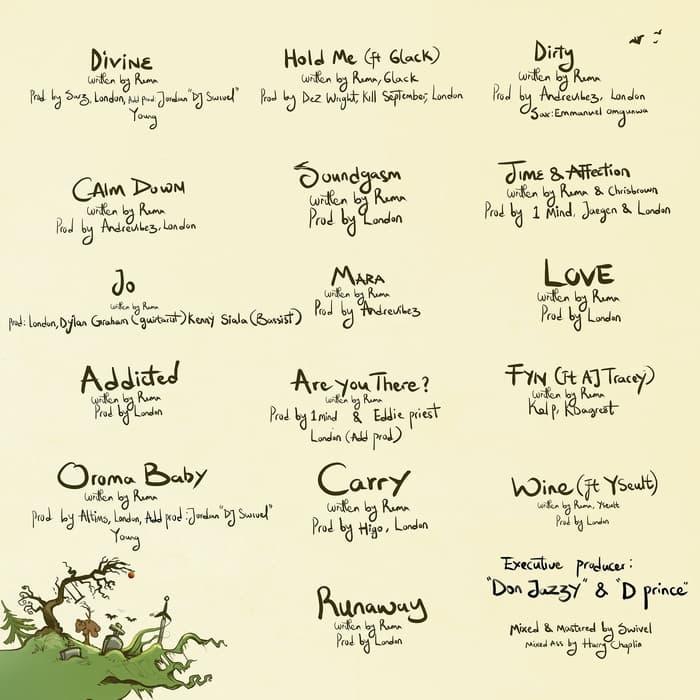 Divine
written by Rema
Prod by Sarz, London, Add prod: Jordan "DJ Swivel"
Young
Hold Me (ft 6lack)
written by Rema, 6lack
Prod by Dez Wright, Kill September, London
Dirty
written by Rema
Prod by Andrevibez, London
Sax: Emmanuel
Calm Down
written by Rema
Prod by Andrevibez, London
Soundgasm
written by Rema
Prod by London
Time & Affection
written by Rema & Chrisbrown
Prod by 1 Mind, Jaegen & London
Jo
written by Rema
prod: London, Dylan Graham (guitarist) Kenny Siala (Bassist)
Mara
written by Rema
Prod by Andrevibez
Love
written by Rema
Prod by London
Addicted
written by Rema
Prod by London
Are you There?
written by Rema
Prod by 1mind & Eddie priest
London (Add prod)
FYN (ft AJ Tracey)
written by Rema
Kal p, Kdagreat
Oroma Baby
written by Rema
prod by Altims, London, Add prod: Jordan "DJ Swivel"
Young
Carry
written by Rema
Prod by Higo, London
Wine (ft Yseult)
written by Rema, Yseult
Prod by London
Runaway
written by Rema
Prod by London
Executive producer:
"Don Jazzy" & "D prince"
Mixed & Mastered by Swivel
Mixed Ass by Harry Chaplin